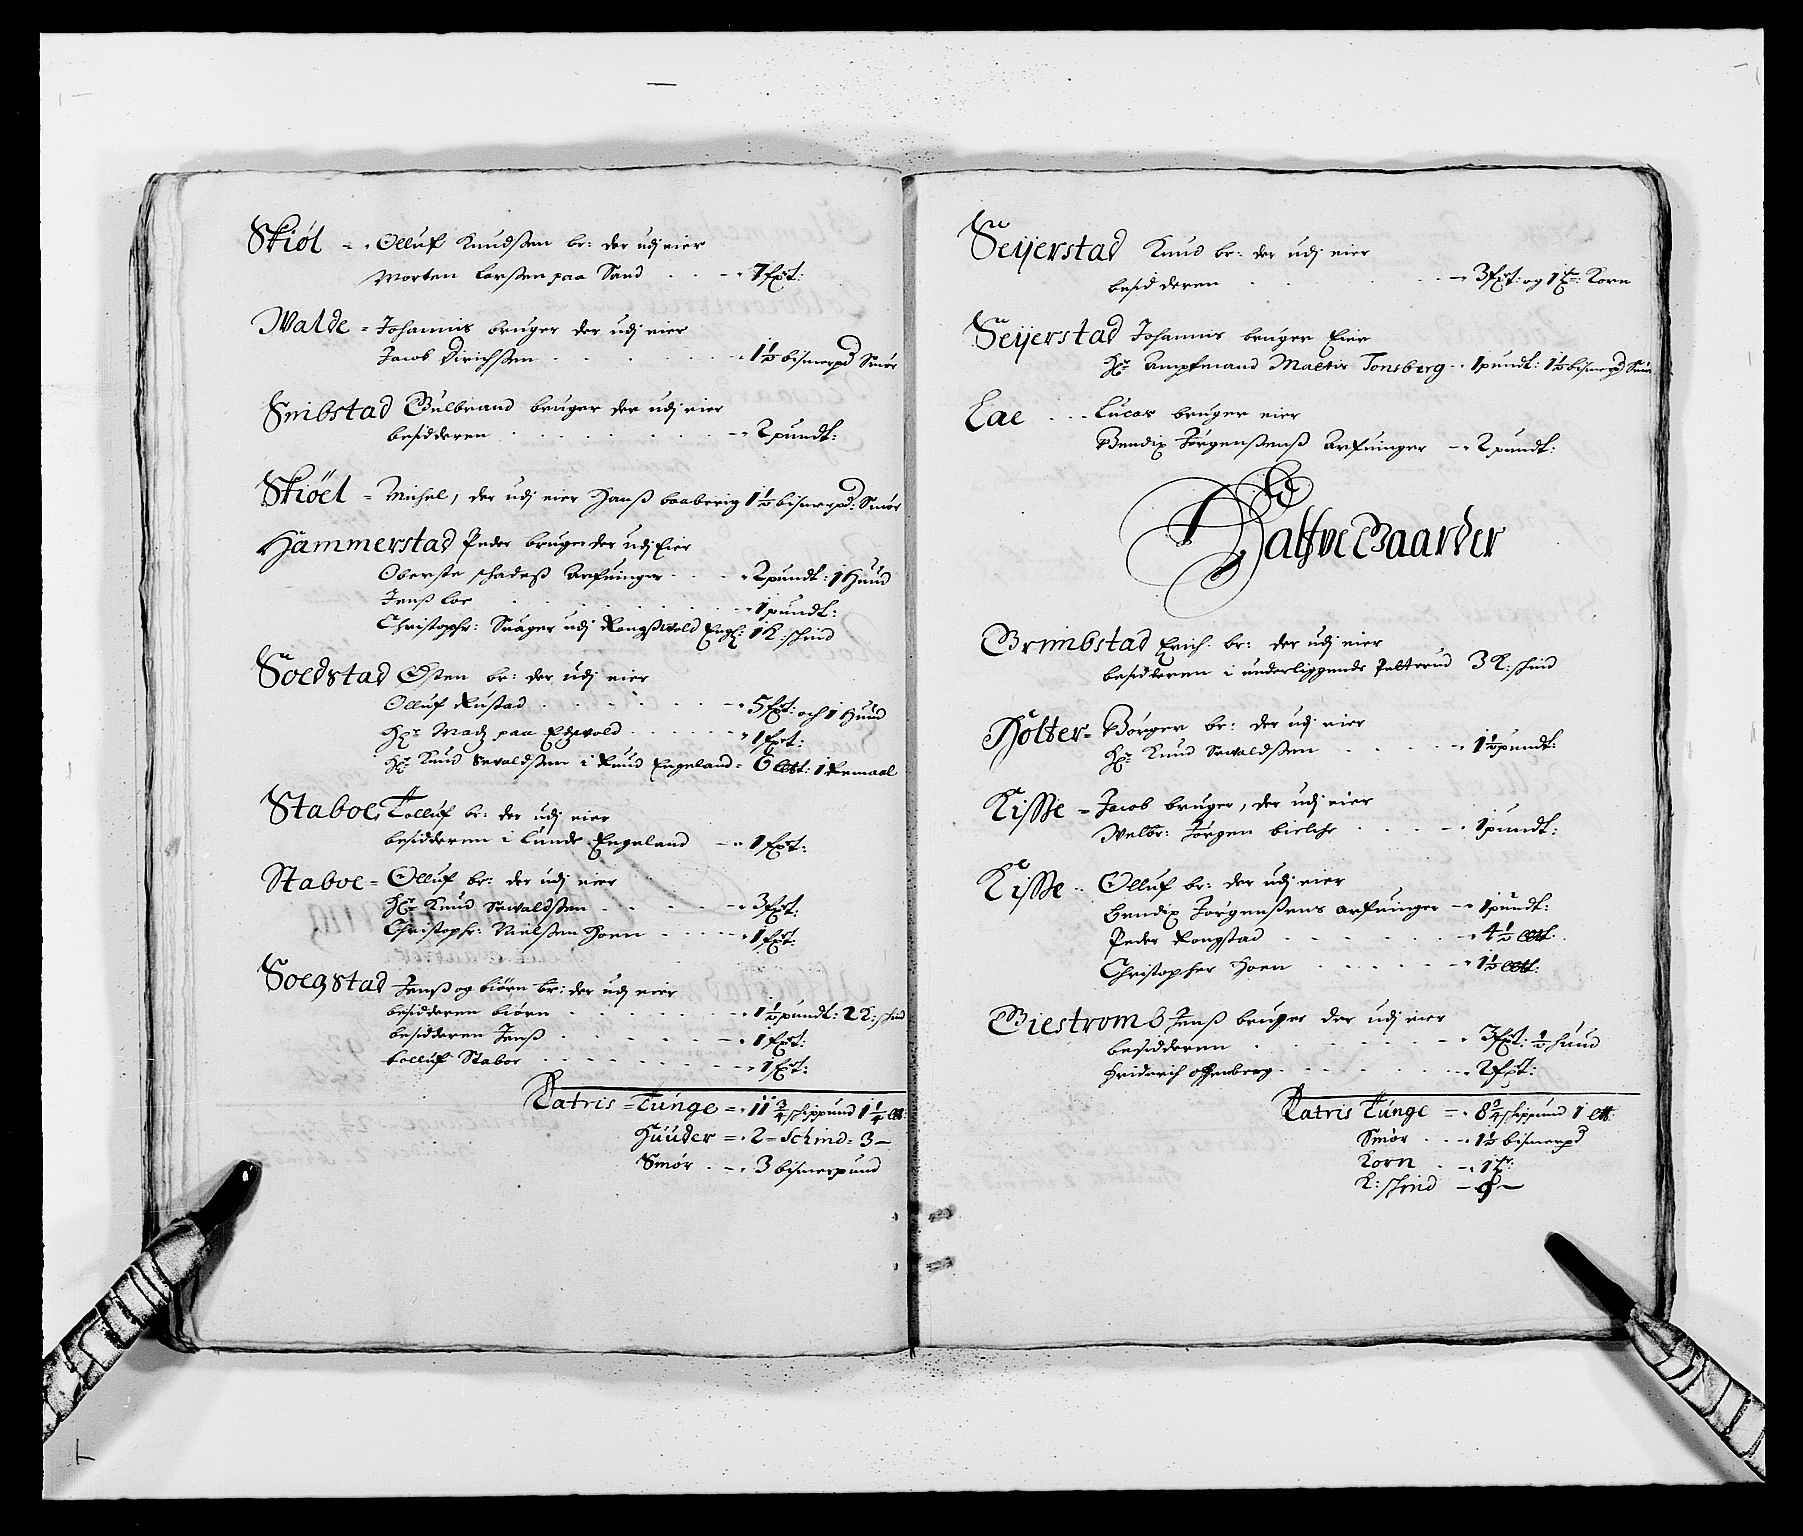 Skiøl - Olluf Knudssen br: der udj eier
Morten Larssen paa Sand - 7 fxr:
Walde - Johannis bruger der udj eier
Jacob Dirichssen - 1½ bismerpd Smør
Smibstad Gulbrand bruger der udj eier
besidderen - 2 pundt:
Skiøel - Michel, der udj eier Hanß baaberig 1½ bismerpd: Smør
Hammerstad Peder bruger der udj Eier
Oberste schadeß Arfuinger - 2 pundt: 1 Huud
Jenß Loe - 1 pundt:
Christopher: Suager udj Rongßwold Engh: 1 K: schind
Soelstad Østen br: der udj eier
Olluf Rustad - 5 fxr: och 1 Huud
Hr Madz paa Edzwold - 1 fxr:
Hr Knud Sewaldssen i Ruud Engeland - 6 ltt: 1 Remaal
Staboe, Tolluf br: der udj eier
besidderen i Lunde Engeland - 1 fxr:
Staboe - Olluf br: der udj eier
Hr Knud Sewaldssen - 3 fxr:
Christopher: Nielssen Hoen - 1 fxr:
Soegstad Jenß og biørn br: der udj eier
besidderen biørn - 1½ pundt: 2 K: schind
besidderen Jenß - 1 fxr:
Tolluf Staboe - 1 fxr:
Latris - Tunge - 11¾ schippund 1¼ ltt:
Huuder - 2 - Schind - 3 -
Smør - 3 bismerpund
Seijerstad Knud br: der udj eier
besidderen - 3 fxr: og 1 tr: Korn
Seijerstad Johannis bruger Eier
Hr Ampfmand Mattis Tonsberg - 1 pundt: 1½ bismerpd Smør
Lae - Lucas bruger eier
Bendix Jørgenssenß Arfuinger - 2 pundt:
Halfve Gaarder
Grimbstad Erich br: der udj eier
besidderen i underliggende Peltrud 3 K: schind
Holter - Børger br: der udj eier
Hr Knud Sewaldssen - 1½ pundt:
Kisse - Jacob bruger, der udj eier
Welbr: Jørgen bielche - 1 pundt:
Kisse - Olluf br: der udj eier
bendix Jørgenssens arfuinger - 1 pundt:
Peder Rongstad - 4½ ltt:
Christopher Hoen - 1½ ltt:
Giestromb Jenß bruger der udj eier
besidderen - 3 fxr: ½ huud
Friderich offenberg - 2 fxr:
Latris Tunge - 8¾ schippund 1 ltt:
Smør - 1½ bismerpd
Korn - 1 tr:
K: schind - 9 -